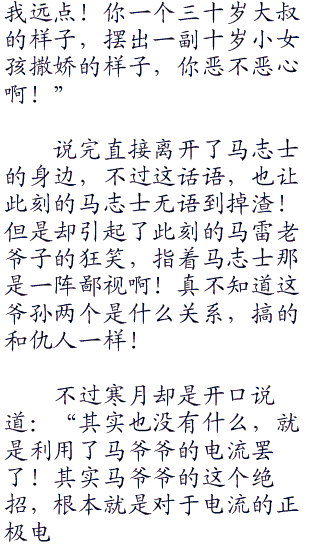 我远点！你一个三十岁大叔
的样子，摆出一副十岁小女
孩撒娇的样子，你恶不恶心
啊！”
说完直接离开了马志士
的身边，不过这话语，也让
此刻的马志士无语到掉渣！
但是却引起了此刻的马雷老
爷子的狂笑，指着马志士那
是一阵鄙视啊！真不知道这
爷孙两个是什么关系，搞的
和仇人一样！
不过寒月却是开口说
道：“其实也没有什么，就
是利用了马爷爷的电流罢
了！其实马爷爷的这个绝
招，根本就是对于电流的正
极电